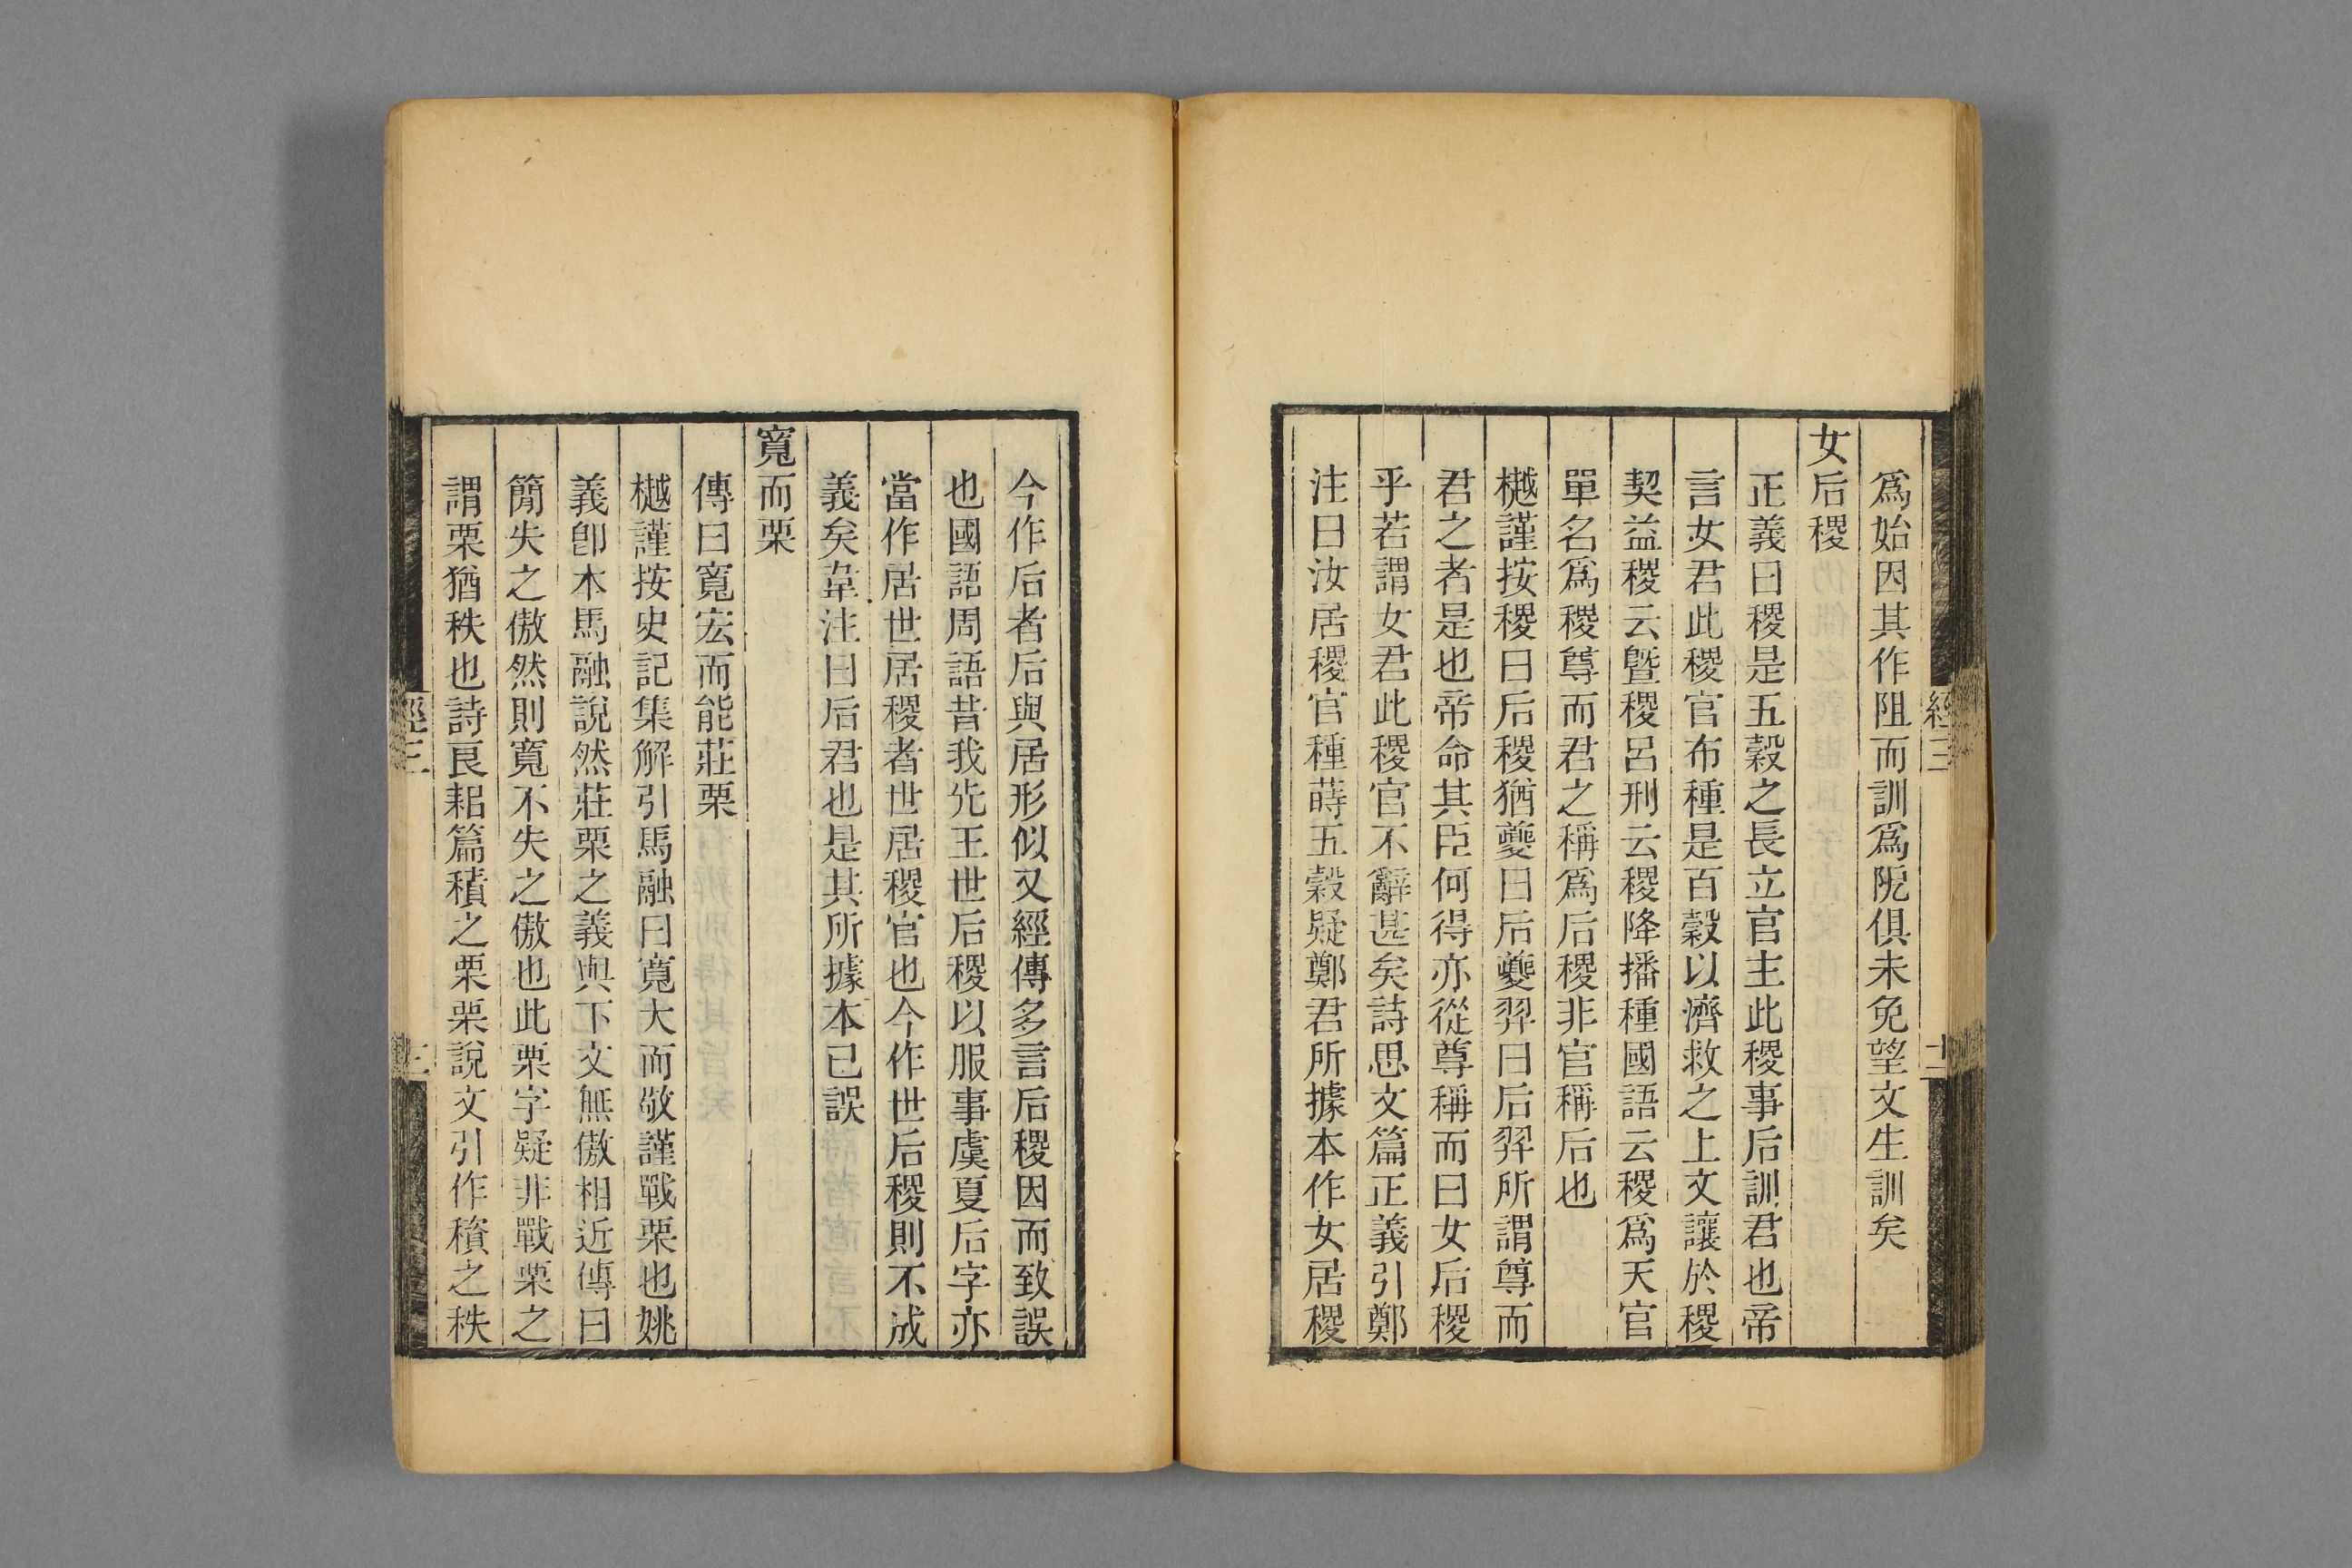 爲始因其作阻而訓爲阸俱未免望文生訓矣
女后稷
正義曰稷是五穀之長立官主此稷事后訓君也帝
言女君此稷官布種是百穀以濟救之上文讓於稷
契益稷云曁稷呂刑云稷降播種國語云稷爲天官
單名爲稷尊而君之稱爲后稷非官稱后也
樾謹按稷曰后稷猶夔曰后夔羿曰后羿所謂尊而
君之者是也帝命其臣何得亦從尊稱而曰女后稷
乎若謂女君此稷官不辭甚矣詩思文篇正義引鄭
注曰汝居稷官種蒔五穀疑鄭君所據本作女居稷
經三
今作后者后與居形似又經傳多言后稷因而致誤
也國語周語昔我先王世后稷以服事虞夏后字亦
當作居世居稷者世居稷官也今作世后稷則不成
義矣韋注曰后君也是其所據本已誤
寬而栗
傳曰寬宏而能莊栗
樾謹按史記集解引馬融曰寬大而敬謹戰栗也姚
義卽本馬融說然莊栗之義與下文無傲相近傳曰
簡失之傲然則寬不失之傲也此栗字疑非戰栗之
謂栗猶秩也詩良耜篇積之栗栗說文引作𥡯之秩
經三